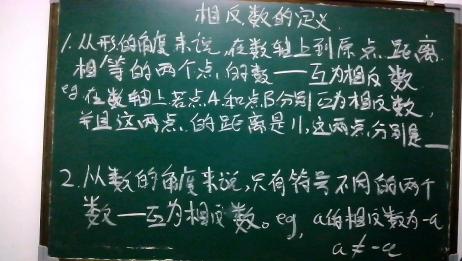 相反数的定义
1.从形的角度来说,在数轴上到原点距离
相等的两个点的数——互为相反数
eg.在数轴上若点A和点B分别互为相反数,
并且这两点的距离是11,这两点分别是__
2.从数的角度来说,只有符号不同的两个
数——互为相反数。eg, a的相反数为-a
a≠-a